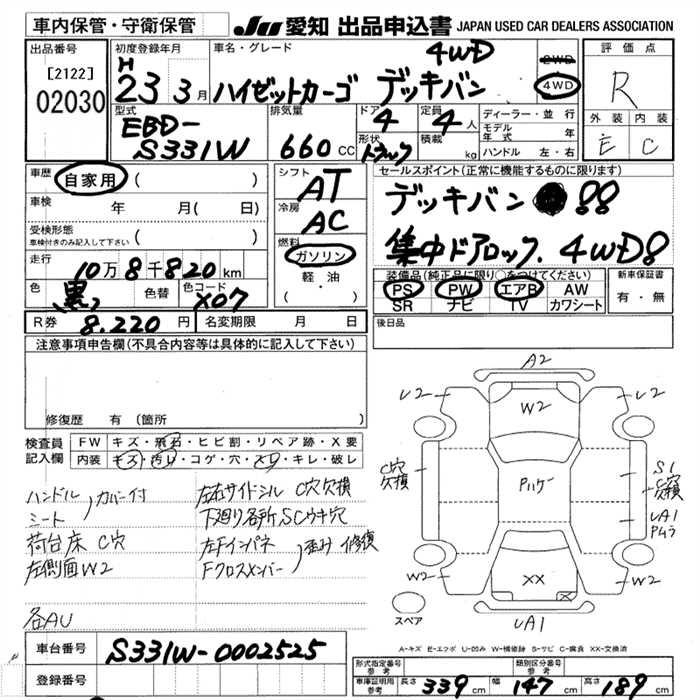 車内保管・守衛保管 JU 愛知 出品申込書 JAPAN USED CAR DEALERS ASSOCIATION
出品番号 初度登録年月 車名・グレード 評価点
[2122]
02030
H 23 3月 ハイゼットカーゴ デッキバン 4WD
2WD
4WD
R
型式 排気量 ドア 定員 ディーラー・並行 外装 内装
EBD-
S331W 660cc 4 4人
モデル年式 年
形状 積載 ハンドル 左・右
トラック kg
E C
車歴 自家用 ( )
シフト AT
セールスポイント(正常に機能するものに限ります)
車検 年 月(日)
冷房 AC
デッキバン!!
受検形態 車検付きのみ記入して下さい ( )
燃料 ガソリン
軽・油
( )
集中ドアロック. 4WD
走行 10万8千820km
装備品(純正品に限り○をつけてください) 新車保証書
PS PW エアB AW
SR ナビ TV カワシート
有・無
色 黒 色替 色コード X07
R券 8.220円 名変期限 月 日
後日品
注意事項申告欄(不具合内容等は具体的に記入して下さい)
修復歴 有 (箇所 )
検査員記入欄 FW キズ・飛石・ヒビ割・リペア跡・X要
内装 キズ・汚れ・コゲ・穴・スレ・キレ・破レ
ハンドル
シート
カバー付
荷台床 C穴
左側面W2
各AU
左右サイドシル C穴欠損
下廻り各所SCウキ穴
左Fインパネ
Fクロスメンバー
歪み 修復
A2
U2
U2
W2
C穴欠損
Pハゲー
S1
C穴欠損
UA1
Pムラ
W2
XX
W2
UA1
スペア
A-キズ E-エクボ U-凹み W-補修跡 S-サビ C-腐食 XX-交換済
車台番号 S331W-0002525
登録番号
形式指定番号 参考 類別区分番号 参考
車庫証明用 参考 長さ 339cm 幅 147cm 高さ 189cm